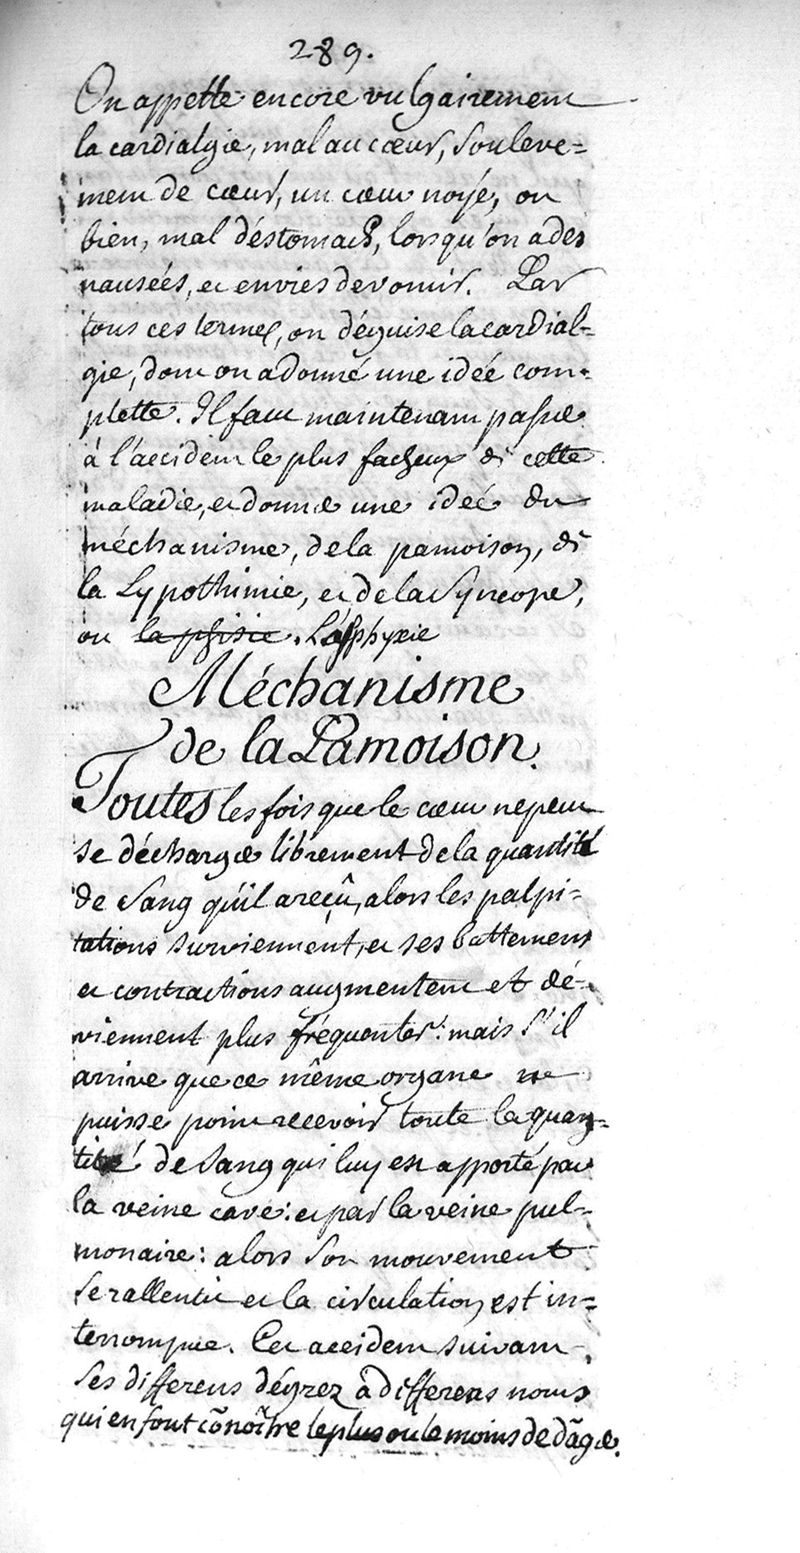 289.
On appelle encore vulgairement
la cardialgie, mal au cœur, souleve=
ment de cœur, un cœur noyé, ou
bien, mal d'éstomach, lorsqu'on a des
nausées, et envies de vomir. Par
tous ces termes, on déguise la cardial=
gie, dont on a donné une idée com=
plette. Il faut maintenant passer
à l'accident le plus facheux de cette
maladie, et donner une ideé du
méchanisme, de la pamoison, de
la Lypothimie, et de la Syncope,
ou la phisie. L'asphyxie
Méchanisme
de la Pamoison.
Toutes les fois que le cœur ne peut
se décharger librement de la quantité
de Sang qu'il a reçû, alors les palpi=
tations surviennent, et ses battemens
et contractions augmentent et dé=
viennent plus fréquentes: mais s'il
arrive que ce même organe ne
puisse point recevoir toute la quan=
tité de Sang qui luy est apporté par
la veine cave: et par la veine pul=
monaire: alors son mouvement
se rallentit et la circulation est in=
terrompue. Cet accident suivant
ses differens dégrez à differens noms
qui en font cōnoître le plus ou le moins de dāger.